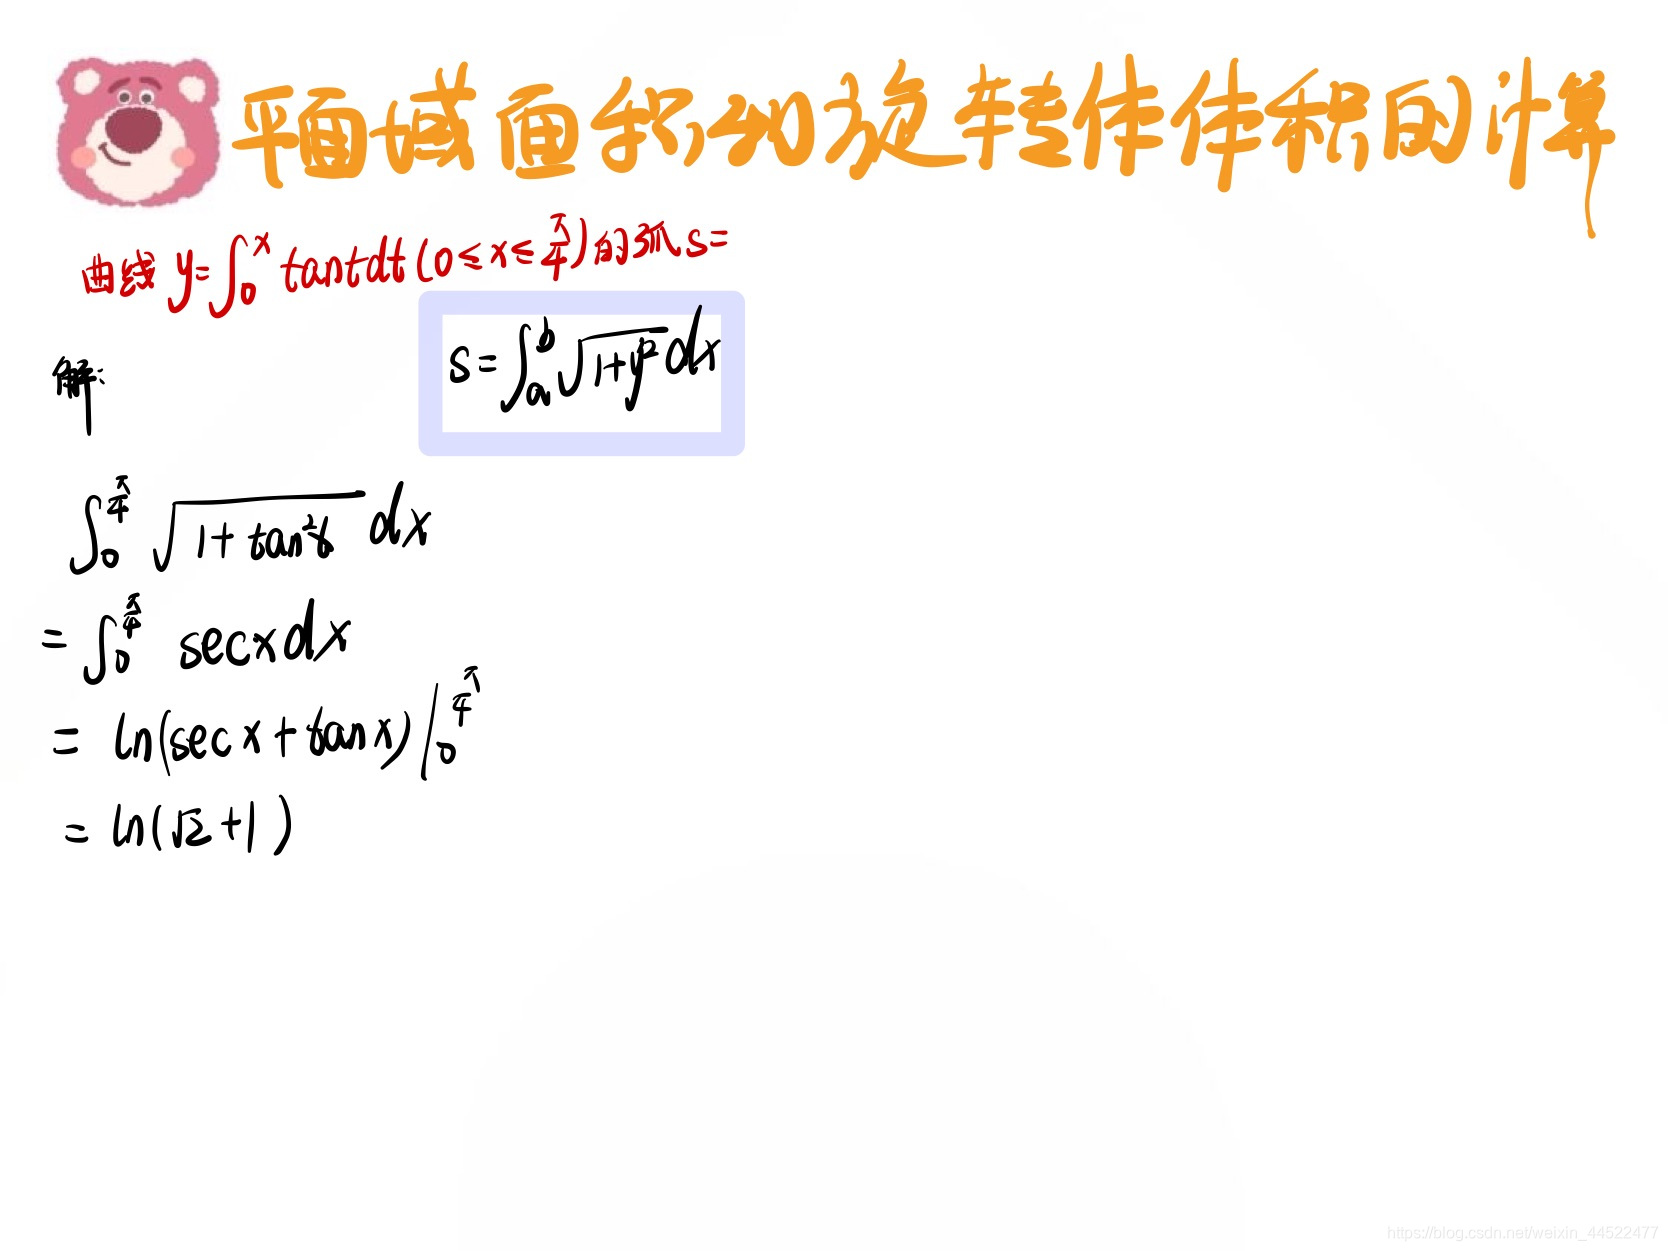 平面域面积和旋转体体积的计算
曲线 y=∫₀ˣ tantdt (0≤x≤π/4) 的弧 s=
s=∫ₐᵇ √(1+y'²) dx
解:
∫₀^(π/4) √(1+tan²x) dx
= ∫₀^(π/4) secxdx
= ln(secx+tanx)|₀^(π/4)
= ln(√2+1)
https://blog.csdn.net/weixin_44522477